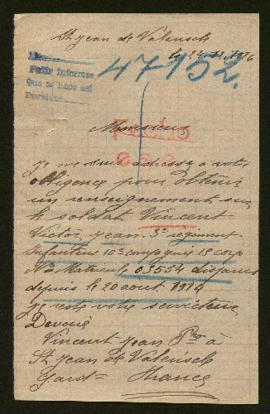 St Jean de Valériscle
le 24 11 1916
47152.
Monsieur
Je me suis adressé a votre
obligence pour obtenir
un renseignement sur
le soldat Vincent
Victor, jean. 3e regiment
infanterie 10e compagnie 15e corp
No Matricule 03554 disparu
depuis le 20 aout 1914
Je reste votre serviteur
Devoué
Vincent Jean
St Jean de Valériscle
Gard France